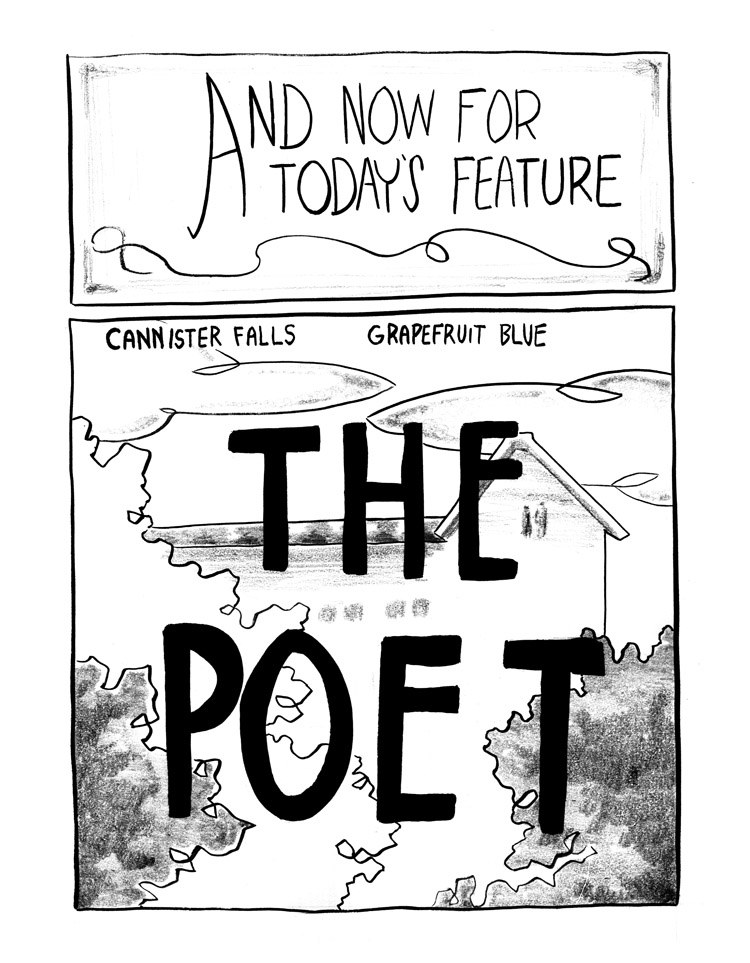 AND NOW FOR
TODAY'S FEATURE
CANNISTER FALLS GRAPEFRUIT BLUE
THE
POET